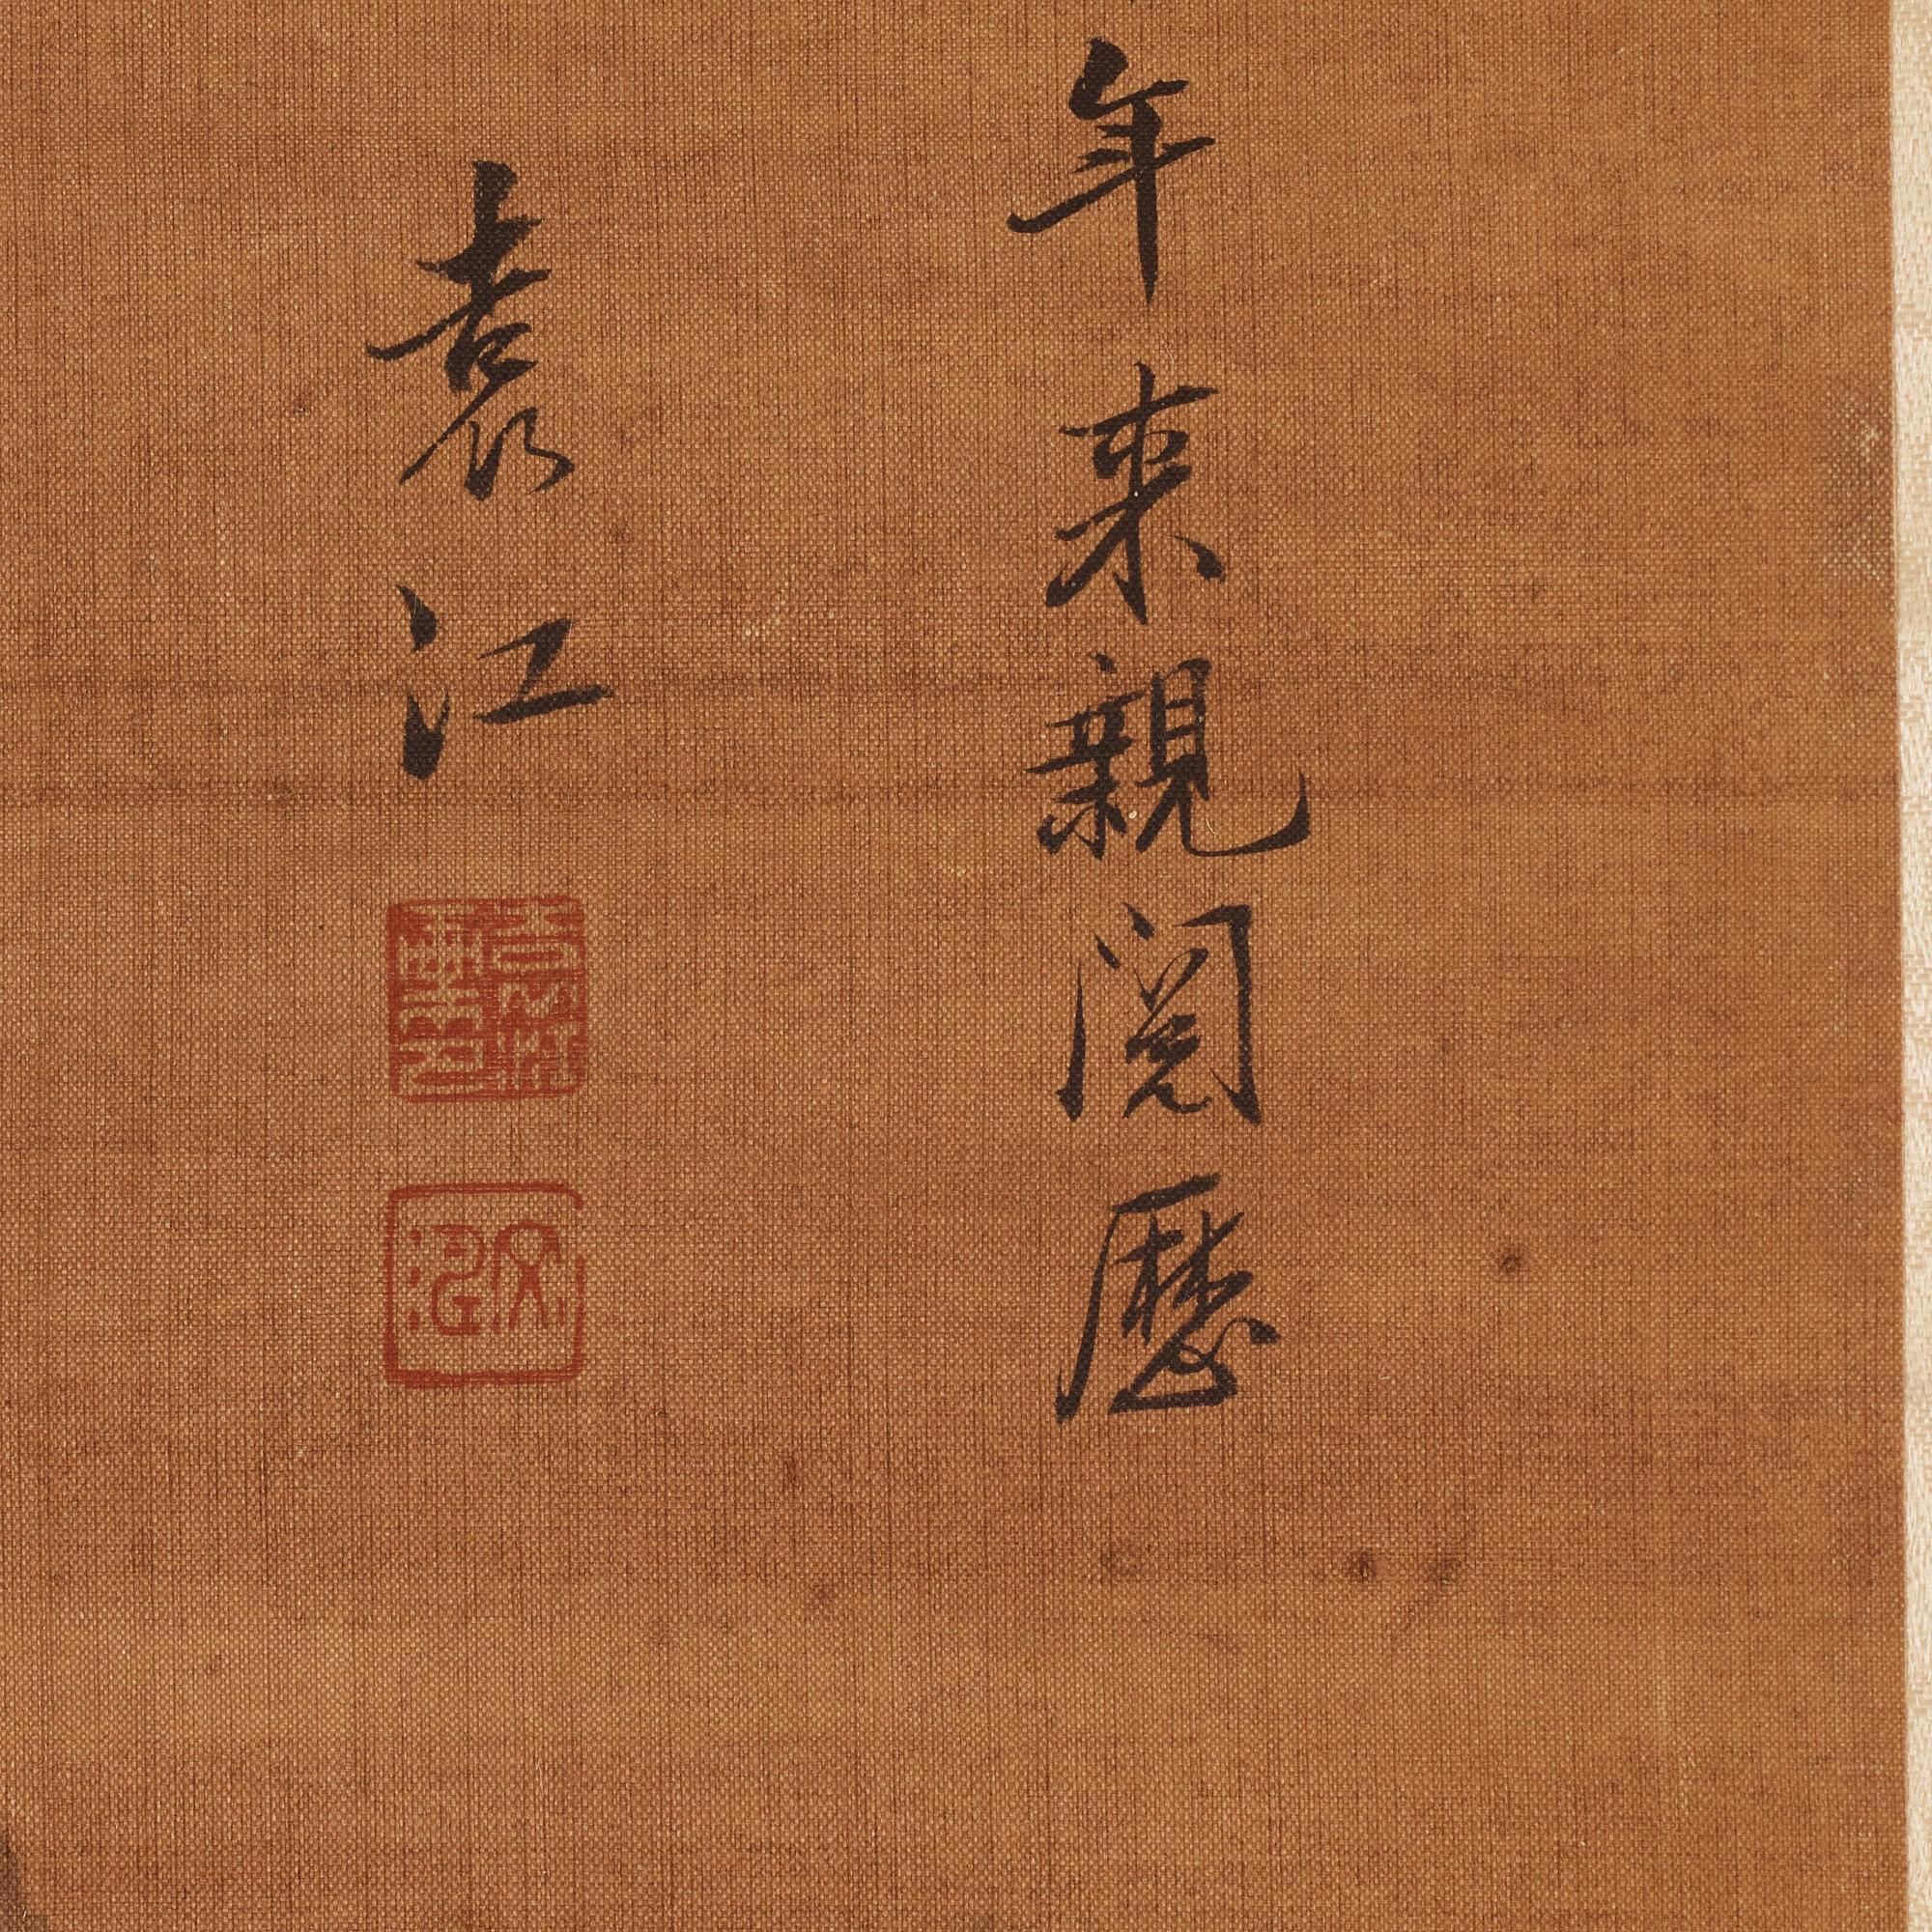 年來親閱歷
袁江